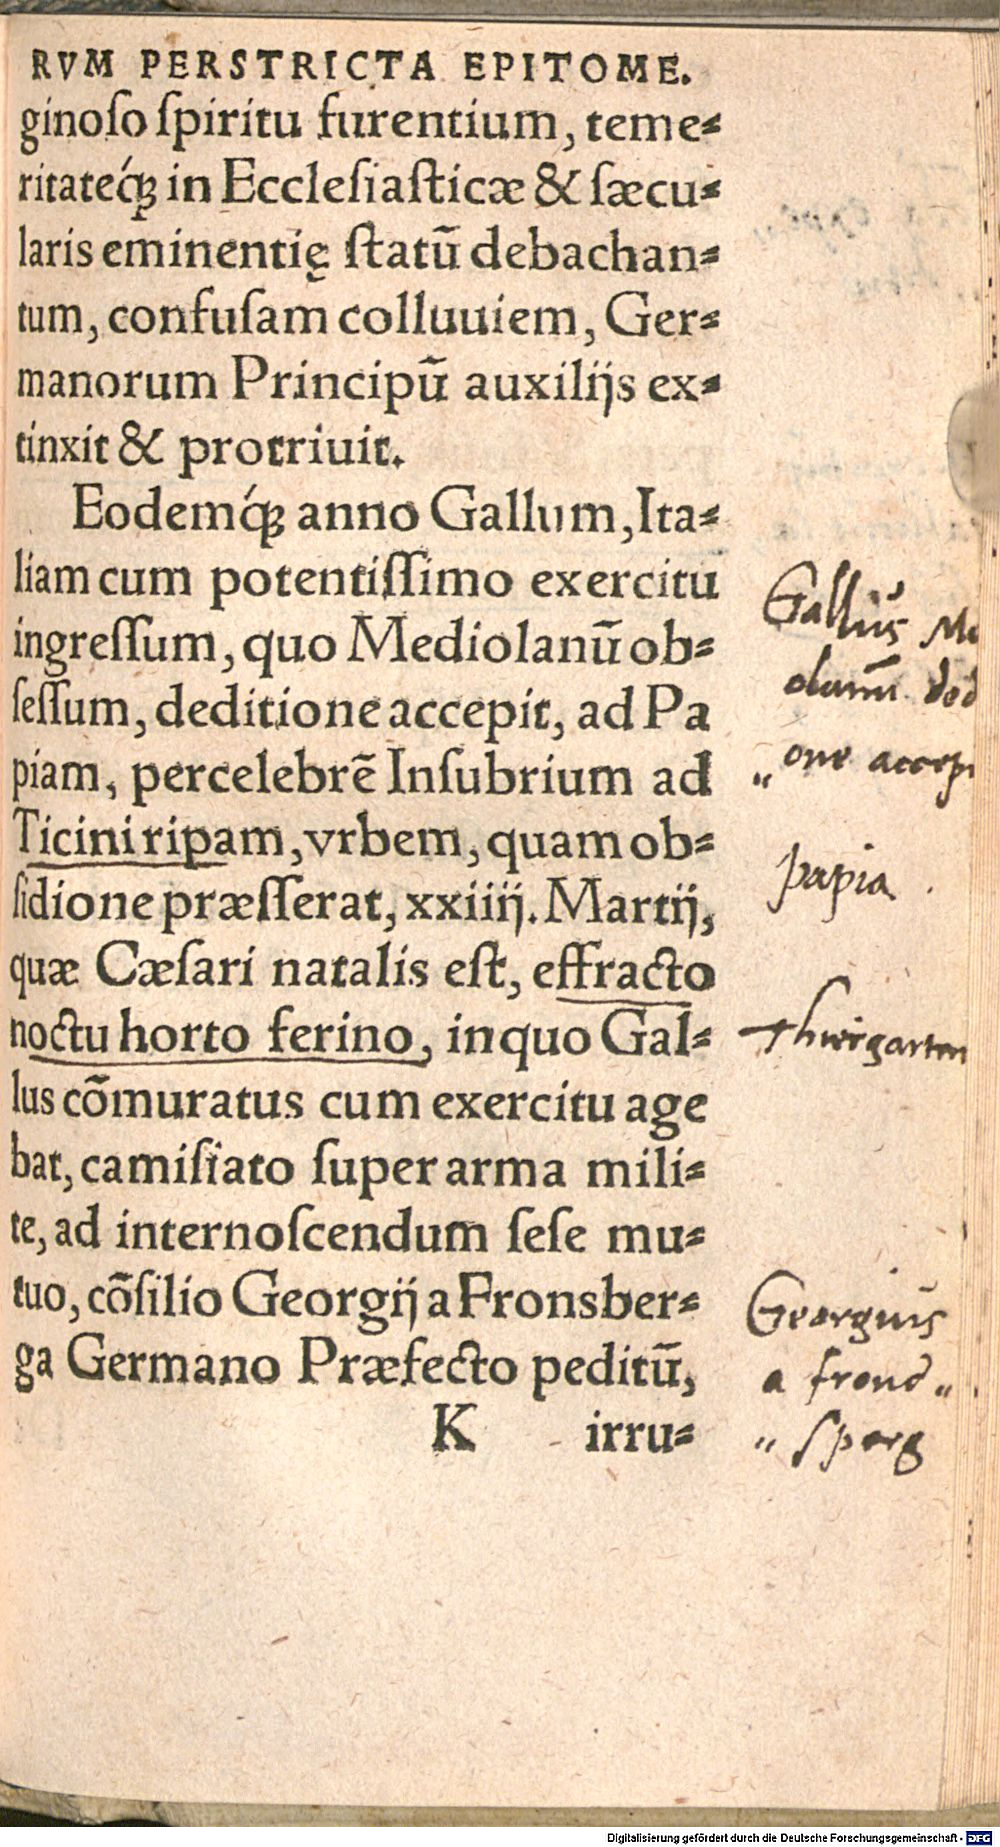 RVM PERSTRICTA EPITOME.
ginoſo ſpiritu furentium, teme⸗
ritateq́ꝫ in Eccleſiaſticæ & ſæcu⸗
laris eminentię ſtatũ debachan⸗
tum, confuſam colluuiem, Ger⸗
manorum Principũ auxilijs ex⸗
tinxit & protriuit.
Eodemq́ꝫ anno Gallum, Ita⸗
liam cum potentiſſimo exercitu
ingreſſum, quo Mediolanũ ob⸗
ſeſſum, deditione accepit, ad Pa
piam, percelebrẽ Inſubrium ad
Ticini ripam, vrbem, quam ob⸗
ſidione præſſerat, xxiiij. Martij,
quæ Cæſari natalis eſt, effracto
noctu horto ferino, in quo Gal⸗
lus cõmuratus cum exercitu age
bat, camiſiato ſuper arma mili⸗
te, ad internoſcendum ſeſe mu⸗
tuo, cõſilio Georgij a Fronsber⸗
ga Germano Præfecto peditũ,
K irru⸗
Gallus Me
olanum ded
„ one accepi
papia.
Thiergarten
Georgius
a frond „
„ sperg
Digitalisierung gefördert durch die Deutsche Forschungsgemeinschaft - DFG